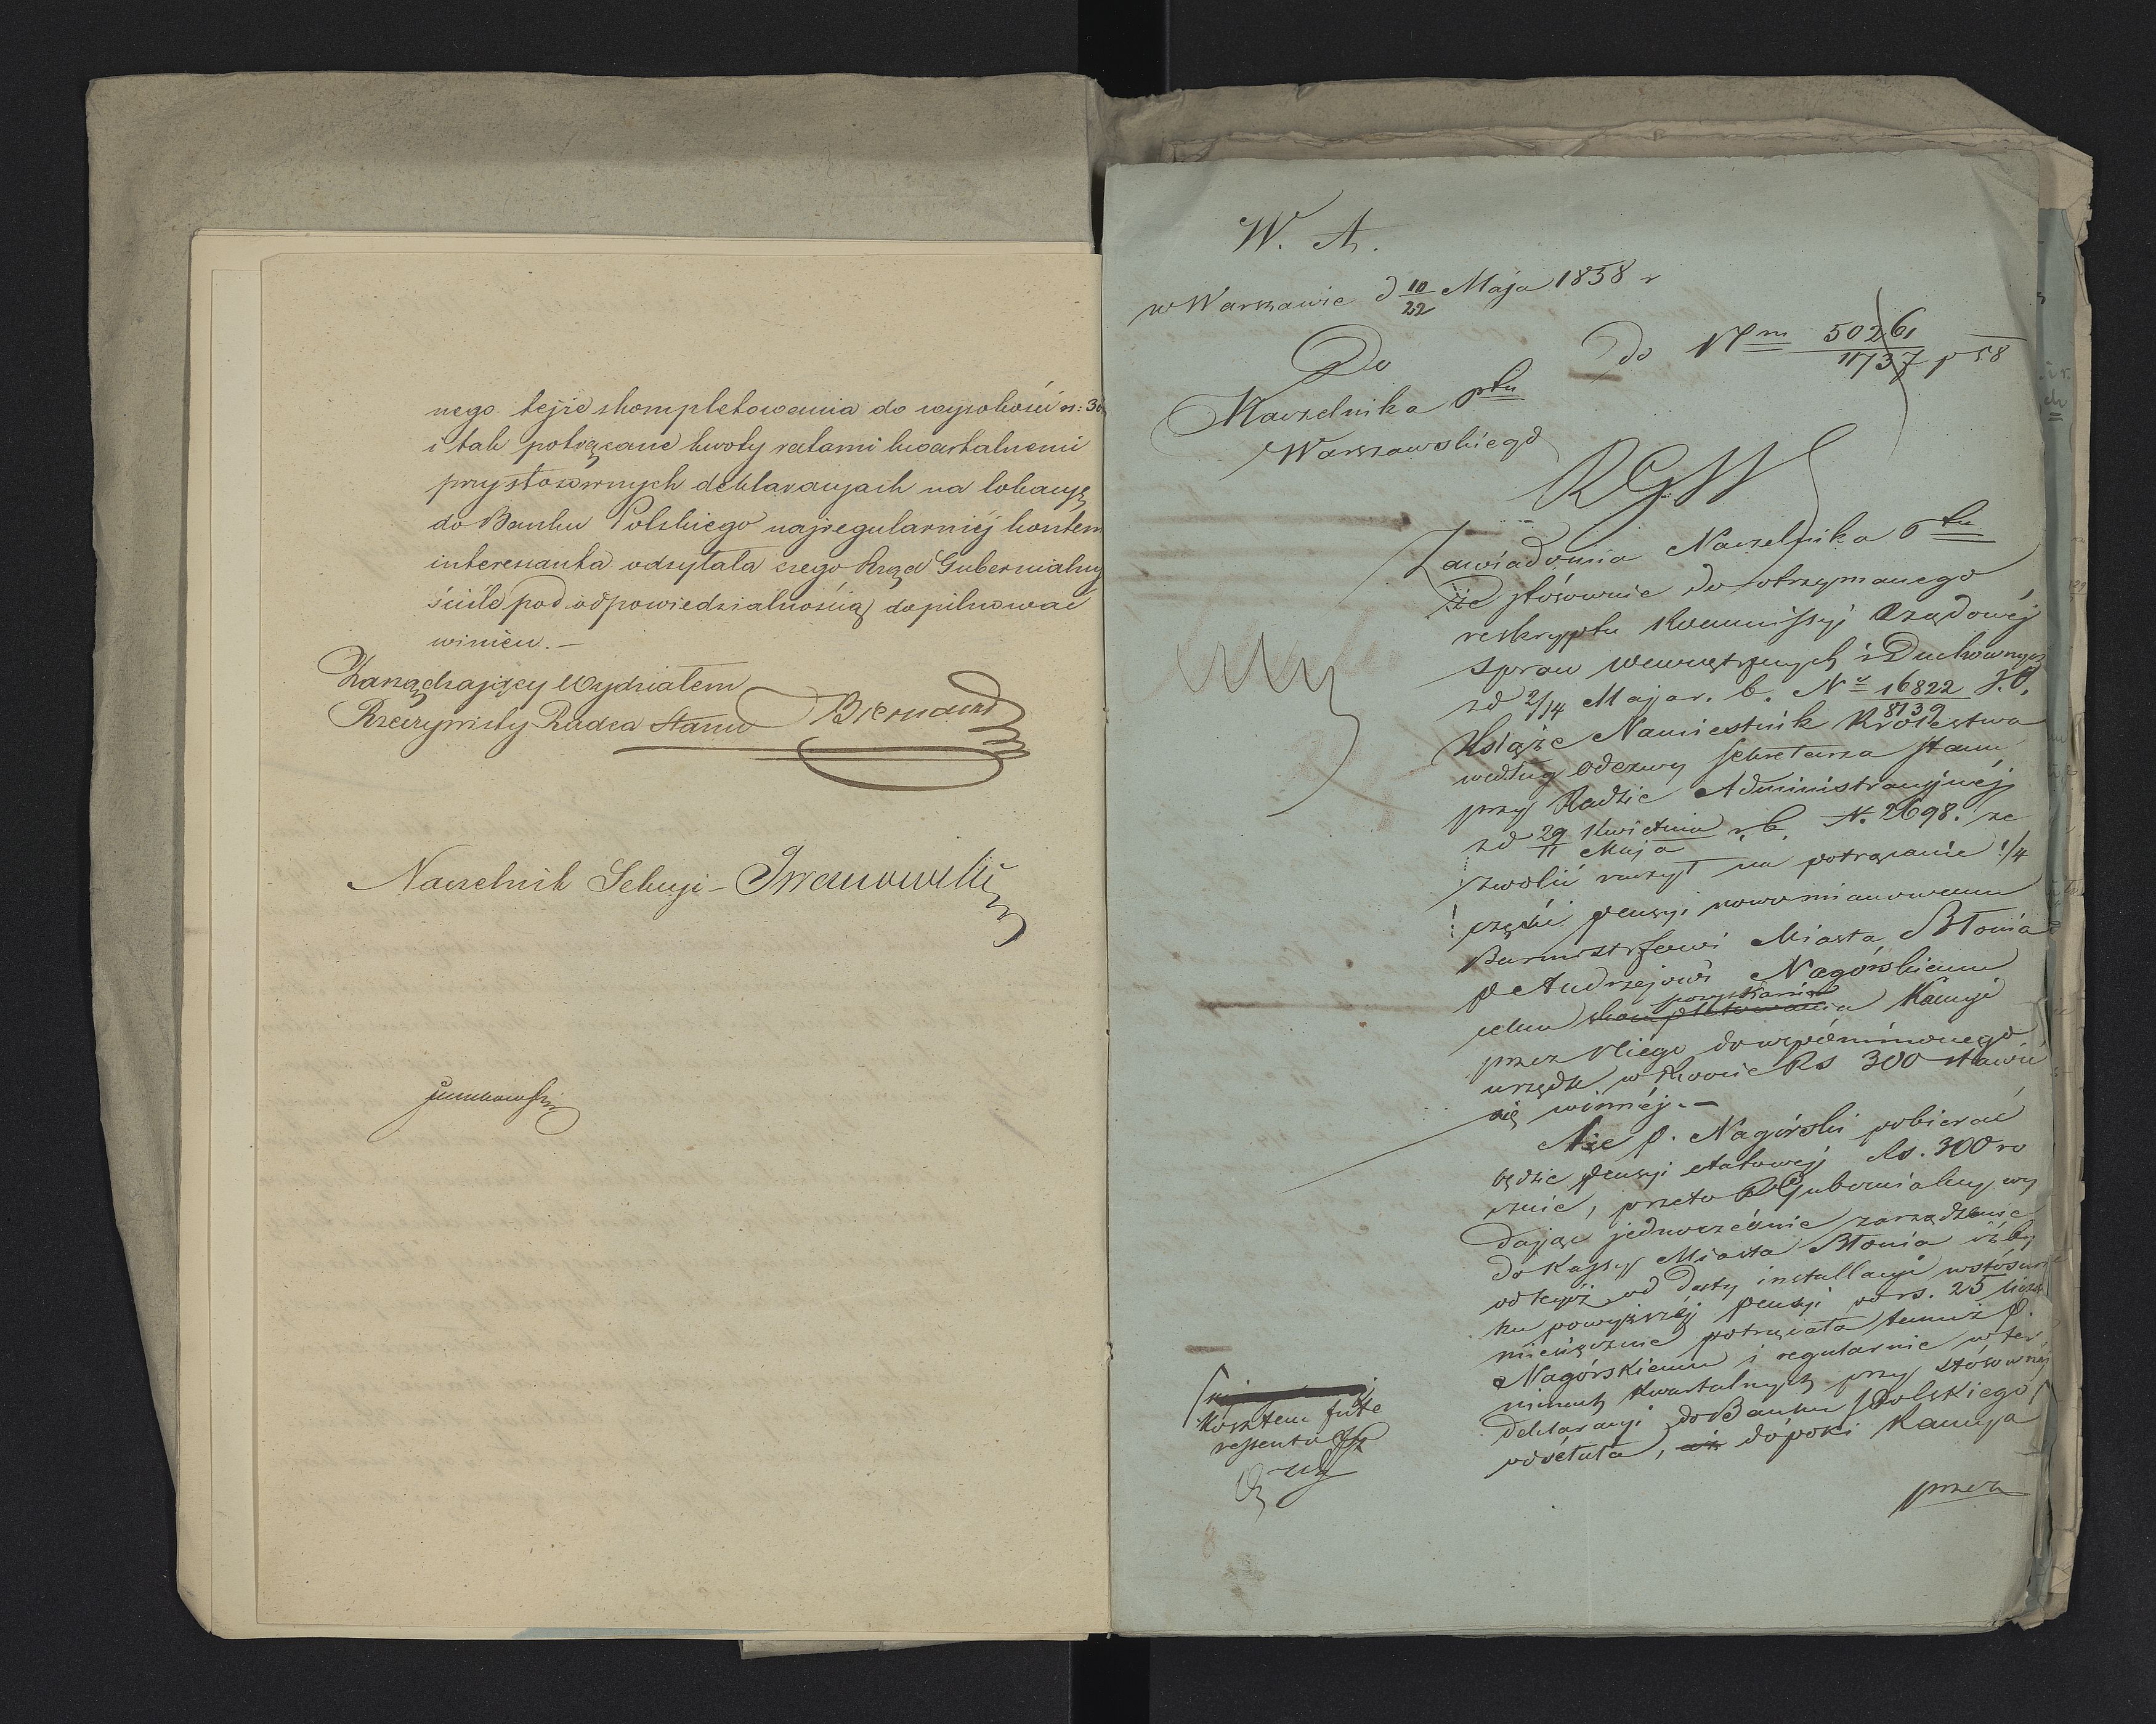 nego tejże skompletowania do wysokości rs: 300
i tak potrącane kwoty ratami kwartalnemi
przy stosownych deklaracyjach na lokacyę
do Banku Polskiego najregularniéj kosztem
interessanta odsyłała czego Rząd Gubernialny
ściśle pod odpowiedzialnością dopilnować
winien. —
Zarządzający Wydziałem
Rzeczywisty Radca Stanu
Naczelnik Sekcyi -
W. A.
w Warszawie d 10/22 Maja 1858 r
Do
Do Nru 50261/11737 p 58
Naczelnika Ptu
Warszawskiego
RGW
Zawiadomia Naczelnika Ptu
że stósownie do otrzymanego
reskryptu Kommissyi Rządowéj
Spraw Wewnętrznych i Duchownych
zd 2/14 Maja r. b. No 16822/8139 J.O.
Książe Namiestnik Królestwa
według Odezwy Sekretarza Stanu
przy Radzie Administracyjnéj
zd 29 Kwietnia/11 Maja r. b. N. 2698. ze
zwolić raczył na potrącanie 1/4
części pensyi nowomianowanemu
Burmistrzowi Miasta Błonia
P Andrzejowi Nagórskiemu
pozyskania
celem skompletowania Kaucyi
przez Niego do wspómnionego
urzędu w kwocie Rs 300 stawić
się winnéj. —
Że P. Nagórski pobierać
będzie pensyi etatowéj Rs. 300 ro
cznie, przeto R Gubernialny wy
dając jednocześnie zarządzenie
do Kassy Miasta Błonia iżby
od tegoż od daty installacyi wstósun
ku powyższéj pensyi po rs. 25
miesięcznie potrącała temuż P.
Nagórskiemu i regularnie w ter
minach kwartalnych przy stósownéj
deklaracyi do Banku Polskiego
odsełała, dopóki Kaucya
kosztem Inte
ressenta
przez